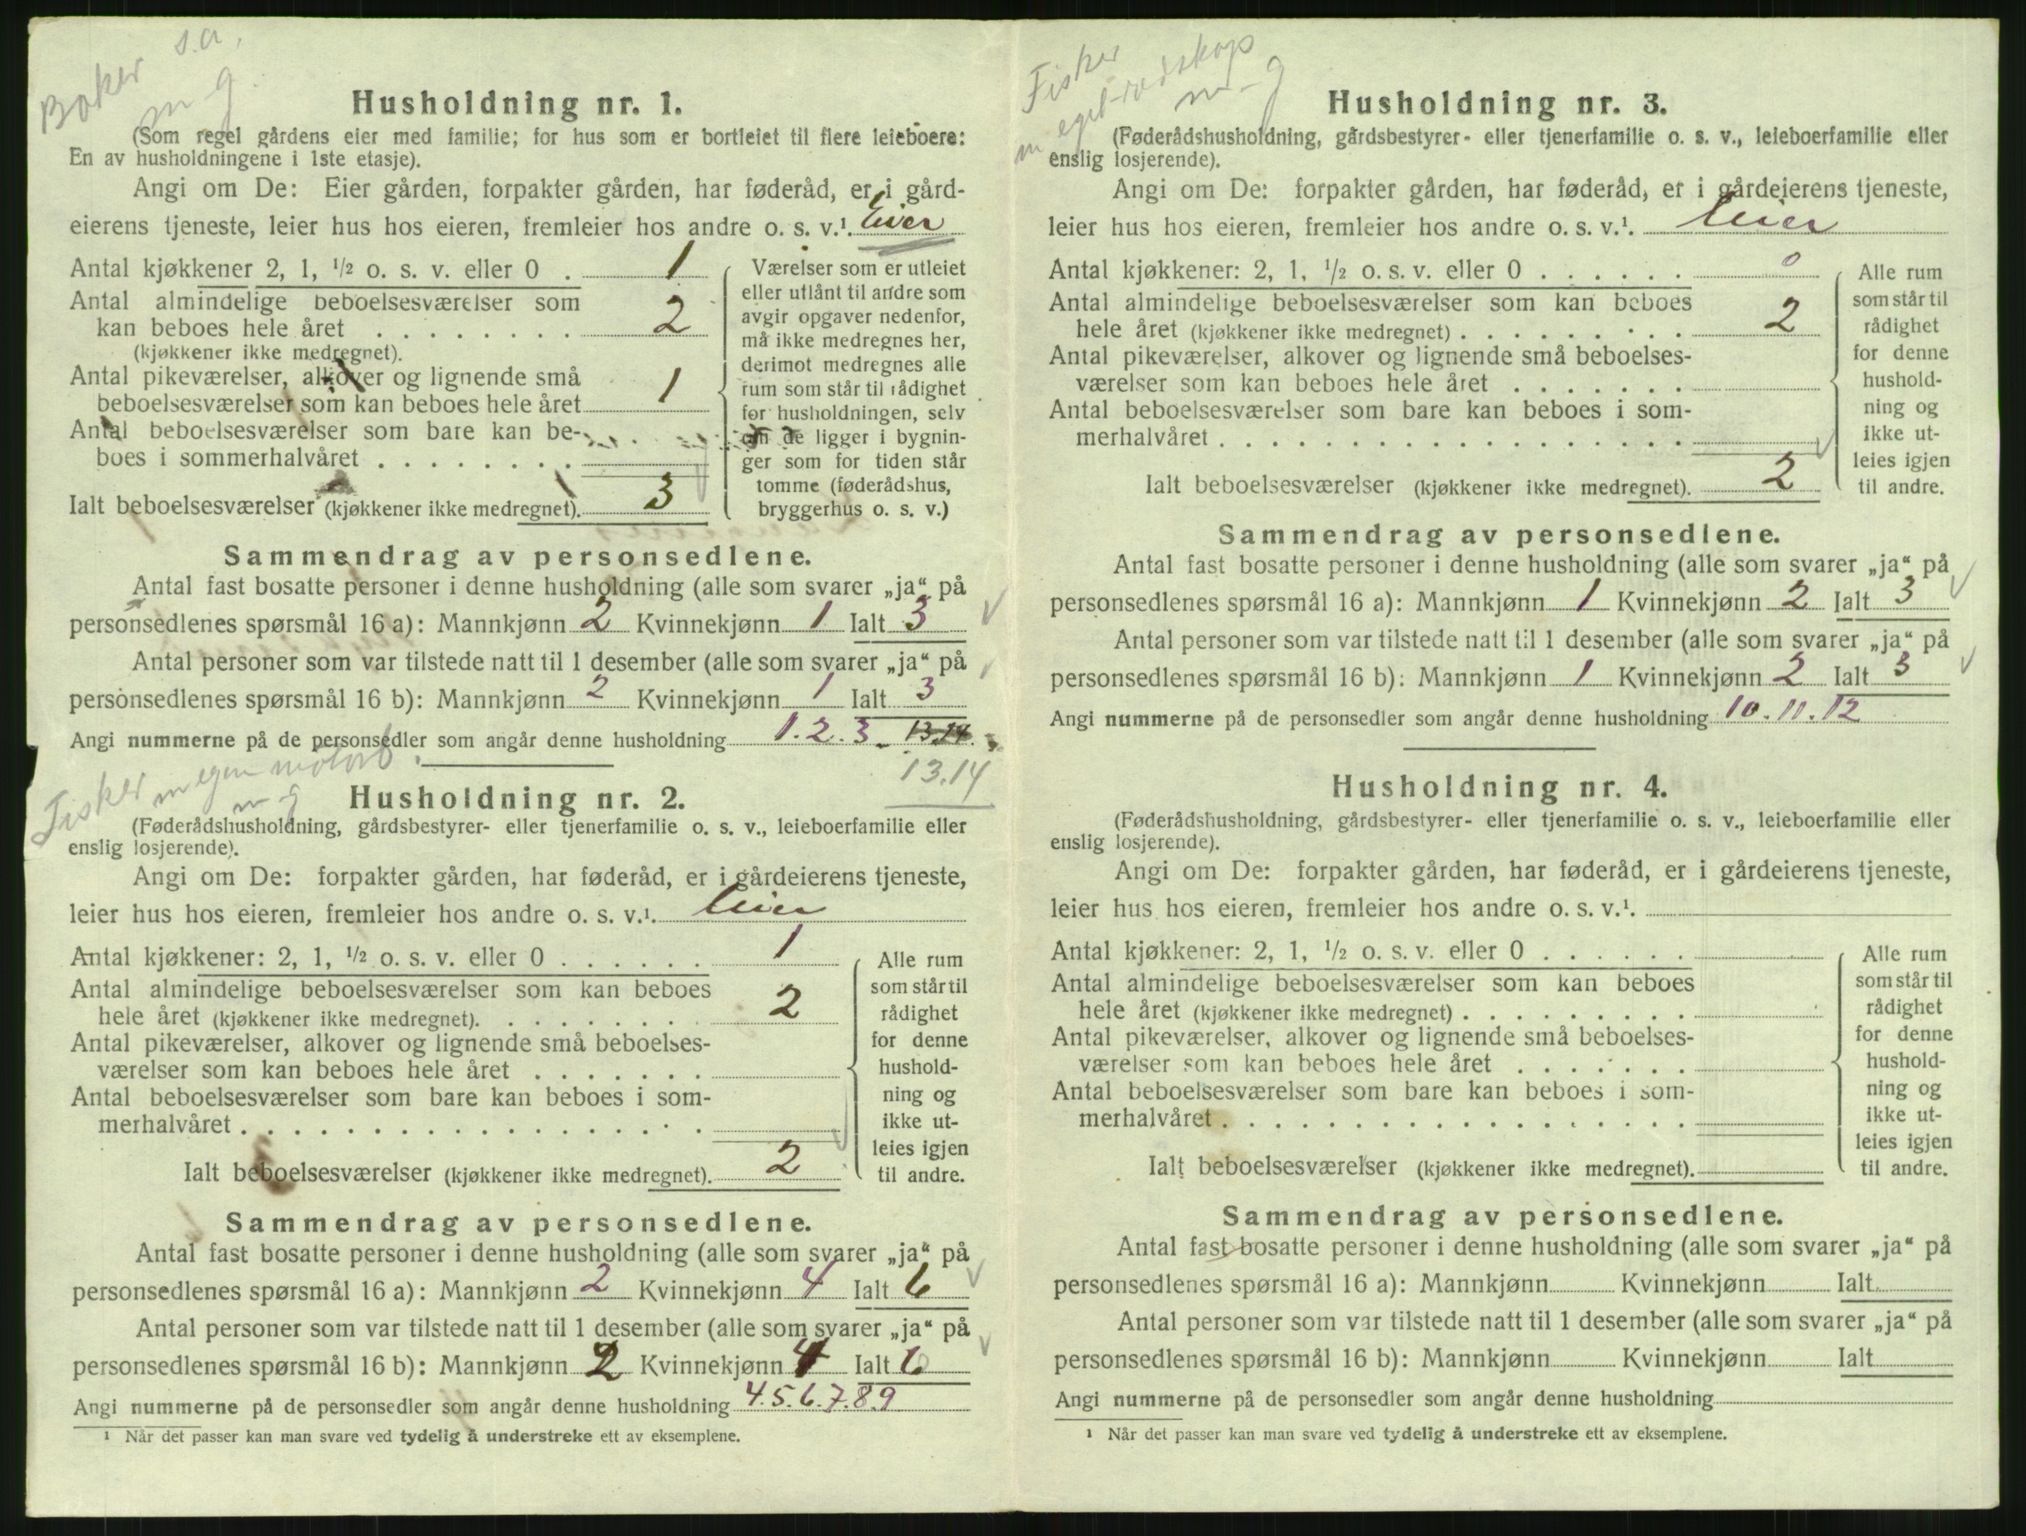 Baker s.a.
m g.
Husholdning nr. 1.
(Som regel gårdens eier med familie; for hus som er bortleiet til flere leieboere:
En av husholdningene i 1ste etasje).
Angi om De: Eier gården, forpakter gården, har føderåd, er i gård-
eierens tjeneste, leier hus hos eieren, fremleier hos andre o. s. v.¹. Eier
Antal kjøkkener 2, 1, ½ o. s. v. eller 0 . 1
Antal almindelige beboelsesværelser som
kan beboes hele året . . . . . . . 2
(kjøkkener ikke medregnet).
Antal pikeværelser, alkover og lignende små
beboelsesværelser som kan beboes hele året 1
Antal beboelsesværelser som bare kan be-
boes i sommerhalvåret . . . . . . .
Ialt beboelsesværelser (kjøkkener ikke medregnet). 3
Værelser som er utleiet
eller utlånt til andre som
avgir opgaver nedenfor,
må ikke medregnes her,
derimot medregnes alle
rum som står til rådighet
for husholdningen, selv
om de ligger i bygnin-
ger som for tiden står
tomme (føderådshus,
bryggerhus o. s. v.)
Sammendrag av personsedlene.
Antal fast bosatte personer i denne husholdning (alle som svarer „ja“ på
personsedlenes spørsmål 16 a): Mannkjønn 2 Kvinnekjønn 1 Ialt 3
Antal personer som var tilstede natt til 1 desember (alle som svarer „ja“ på
personsedlenes spørsmål 16 b): Mannkjønn 2 Kvinnekjønn 1 Ialt 3
Angi nummerne på de personsedler som angår denne husholdning 1.2.3. 13.14.
13.14
Fisker m egen motorb.
m g
Husholdning nr. 2.
(Føderådshusholdning, gårdsbestyrer- eller tjenerfamilie o. s. v., leieboerfamilie eller
enslig losjerende).
Angi om De: forpakter gården, har føderåd, er i gårdeierens tjeneste,
leier hus hos eieren, fremleier hos andre o. s. v.¹. leier
Antal kjøkkener: 2, 1, ½ o. s. v. eller 0 . . . . . . 1
Antal almindelige beboelsesværelser som kan beboes
hele året (kjøkkener ikke medregnet). . . . . . . . . 2
Antal pikeværelser, alkover og lignende små beboelses-
værelser som kan beboes hele året . . . . . . .
Antal beboelsesværelser som bare kan beboes i som-
merhalvåret . . . . . . . . . . . . . . . . . .
Ialt beboelsesværelser (kjøkkener ikke medregnet). 2
Alle rum
som står til
rådighet
for denne
hushold-
ning og
ikke ut-
leies igjen
til andre.
Sammendrag av personsedlene.
Antal fast bosatte personer i denne husholdning (alle som svarer „ja“ på
personsedlenes spørsmål 16 a): Mannkjønn 2 Kvinnekjønn 4 Ialt 6
Antal personer som var tilstede natt til 1 desember (alle som svarer „ja“ på
personsedlenes spørsmål 16 b): Mannkjønn 2 Kvinnekjønn 4 Ialt 6
Angi nummerne på de personsedler som angår denne husholdning 4.5.6.7.8.9
¹ Når det passer kan man svare ved tydelig å understreke ett av eksemplene.
Fisker
m eget redskap
m g
Husholdning nr. 3.
(Føderådshusholdning, gårdsbestyrer- eller tjenerfamilie o. s. v., leieboerfamilie eller
enslig losjerende).
Angi om De: forpakter gården, har føderåd, er i gårdeierens tjeneste,
leier hus hos eieren, fremleier hos andre o. s. v.¹. leier
Antal kjøkkener: 2, 1, ½ o. s. v. eller 0 . . . . . . 0
Antal almindelige beboelsesværelser som kan beboes
hele året (kjøkkener ikke medregnet) . . . . . . . . . 2
Antal pikeværelser, alkover og lignende små beboelses-
værelser som kan beboes hele året . . . . . . .
Antal beboelsesværelser som bare kan beboes i som-
merhalvåret . . . . . . . . . . . . . . . . . .
Ialt beboelsesværelser (kjøkkener ikke medregnet). 2
Alle rum
som står til
rådighet
for denne
hushold-
ning og
ikke ut-
leies igjen
til andre.
Sammendrag av personsedlene.
Antal fast bosatte personer i denne husholdning (alle som svarer „ja“ på
personsedlenes spørsmål 16 a): Mannkjønn 1 Kvinnekjønn 2 Ialt 3
Antal personer som var tilstede natt til 1 desember (alle som svarer „ja“ på
personsedlenes spørsmål 16 b): Mannkjønn 1 Kvinnekjønn 2 Ialt 3
Angi nummerne på de personsedler som angår denne husholdning 10.11.12
Husholdning nr. 4.
(Føderådshusholdning, gårdsbestyrer- eller tjenerfamilie o. s. v., leieboerfamilie eller
enslig losjerende).
Angi om De: forpakter gården, har føderåd, er i gårdeierens tjeneste,
leier hus hos eieren, fremleier hos andre o. s. v.¹.
Antal kjøkkener: 2, 1, ½ o. s. v. eller 0 . . . . . .
Antal almindelige beboelsesværelser som kan beboes
hele året (kjøkkener ikke medregnet) . . . . . . . . .
Antal pikeværelser, alkover og lignende små beboelses-
værelser som kan beboes hele året . . . . . . .
Antal beboelsesværelser som bare kan beboes i som-
merhalvåret . . . . . . . . . . . . . . . . . .
Ialt beboelsesværelser (kjøkkener ikke medregnet).
Alle rum
som står til
rådighet
for denne
hushold-
ning og
ikke ut-
leies igjen
til andre.
Sammendrag av personsedlene.
Antal fast bosatte personer i denne husholdning (alle som svarer „ja“ på
personsedlenes spørsmål 16 a): Mannkjønn Kvinnekjønn Ialt
Antal personer som var tilstede natt til 1 desember (alle som svarer „ja“ på
personsedlenes spørsmål 16 b): Mannkjønn Kvinnekjønn Ialt
Angi nummerne på de personsedler som angår denne husholdning
¹ Når det passer kan man svare ved tydelig å understreke ett av eksemplene.